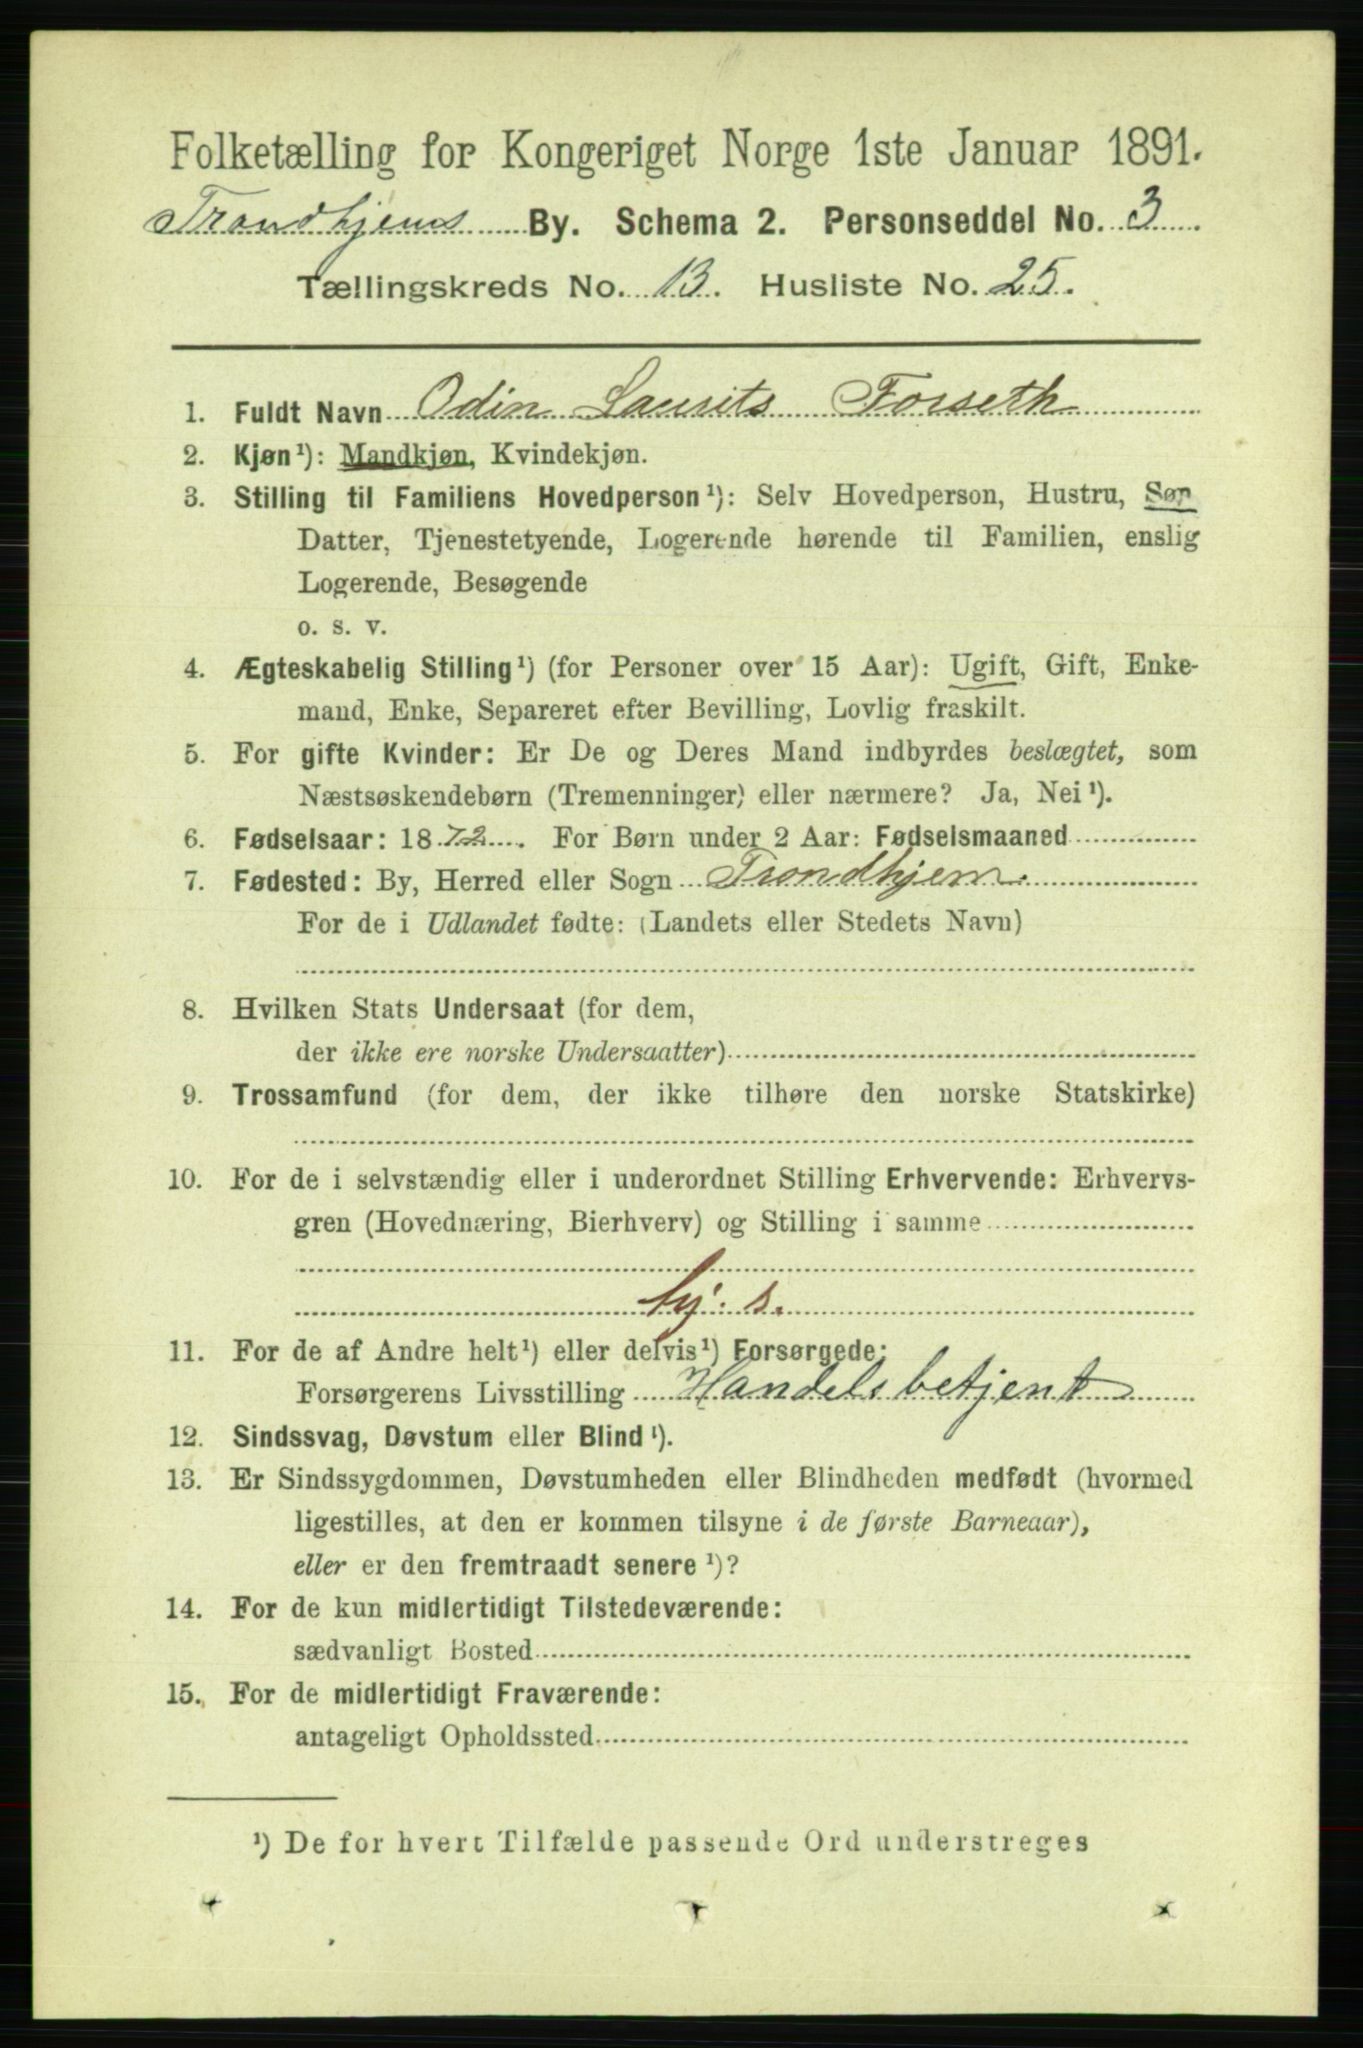 Folketælling for Kongeriget Norge 1ste Januar 1891.
Trondhjems By. Schema 2. Personseddel No. 3
Tællingskreds No. 13. Husliste No. 25.
1. Fuldt Navn Odin Laurits Forseth
2. Kjøn¹): Mandkjøn, Kvindekjøn.
3. Stilling til Familiens Hovedperson¹): Selv Hovedperson, Hustru, Søn
Datter, Tjenestetyende, Logerende hørende til Familien, enslig
Logerende, Besøgende
o. s. v.
4. Ægteskabelig Stilling¹) (for Personer over 15 Aar): Ugift, Gift, Enke-
mand, Enke, Separeret efter Bevilling, Lovlig fraskilt.
5. For gifte Kvinder: Er De og Deres Mand indbyrdes beslægtet, som
Næstsøskendebørn (Tremenninger) eller nærmere? Ja, Nei¹).
6. Fødselsaar: 1872. For Børn under 2 Aar: Fødselsmaaned
7. Fødested: By, Herred eller Sogn Trondhjem.
For de i Udlandet fødte: (Landets eller Stedets Navn)
8. Hvilken Stats Undersaat (for dem,
der ikke ere norske Undersaatter)
9. Trossamfund (for dem, der ikke tilhøre den norske Statskirke)
10. For de i selvstændig eller i underordnet Stilling Erhvervende: Erhvervs-
gren (Hovednæring, Bierhverv) og Stilling i samme
11. For de af Andre helt¹) eller delvis¹) Forsørgede:
Forsørgerens Livsstilling Handelsbetjent
12. Sindssvag, Døvstum eller Blind¹).
13. Er Sindssygdommen, Døvstumheden eller Blindheden medfødt (hvormed
ligestilles, at den er kommen tilsyne i de første Barneaar),
eller er den fremtraadt senere¹)?
14. For de kun midlertidigt Tilstedeværende:
sædvanligt Bosted
15. For de midlertidigt Fraværende:
antageligt Opholdssted
¹) De for hvert Tilfælde passende Ord understreges